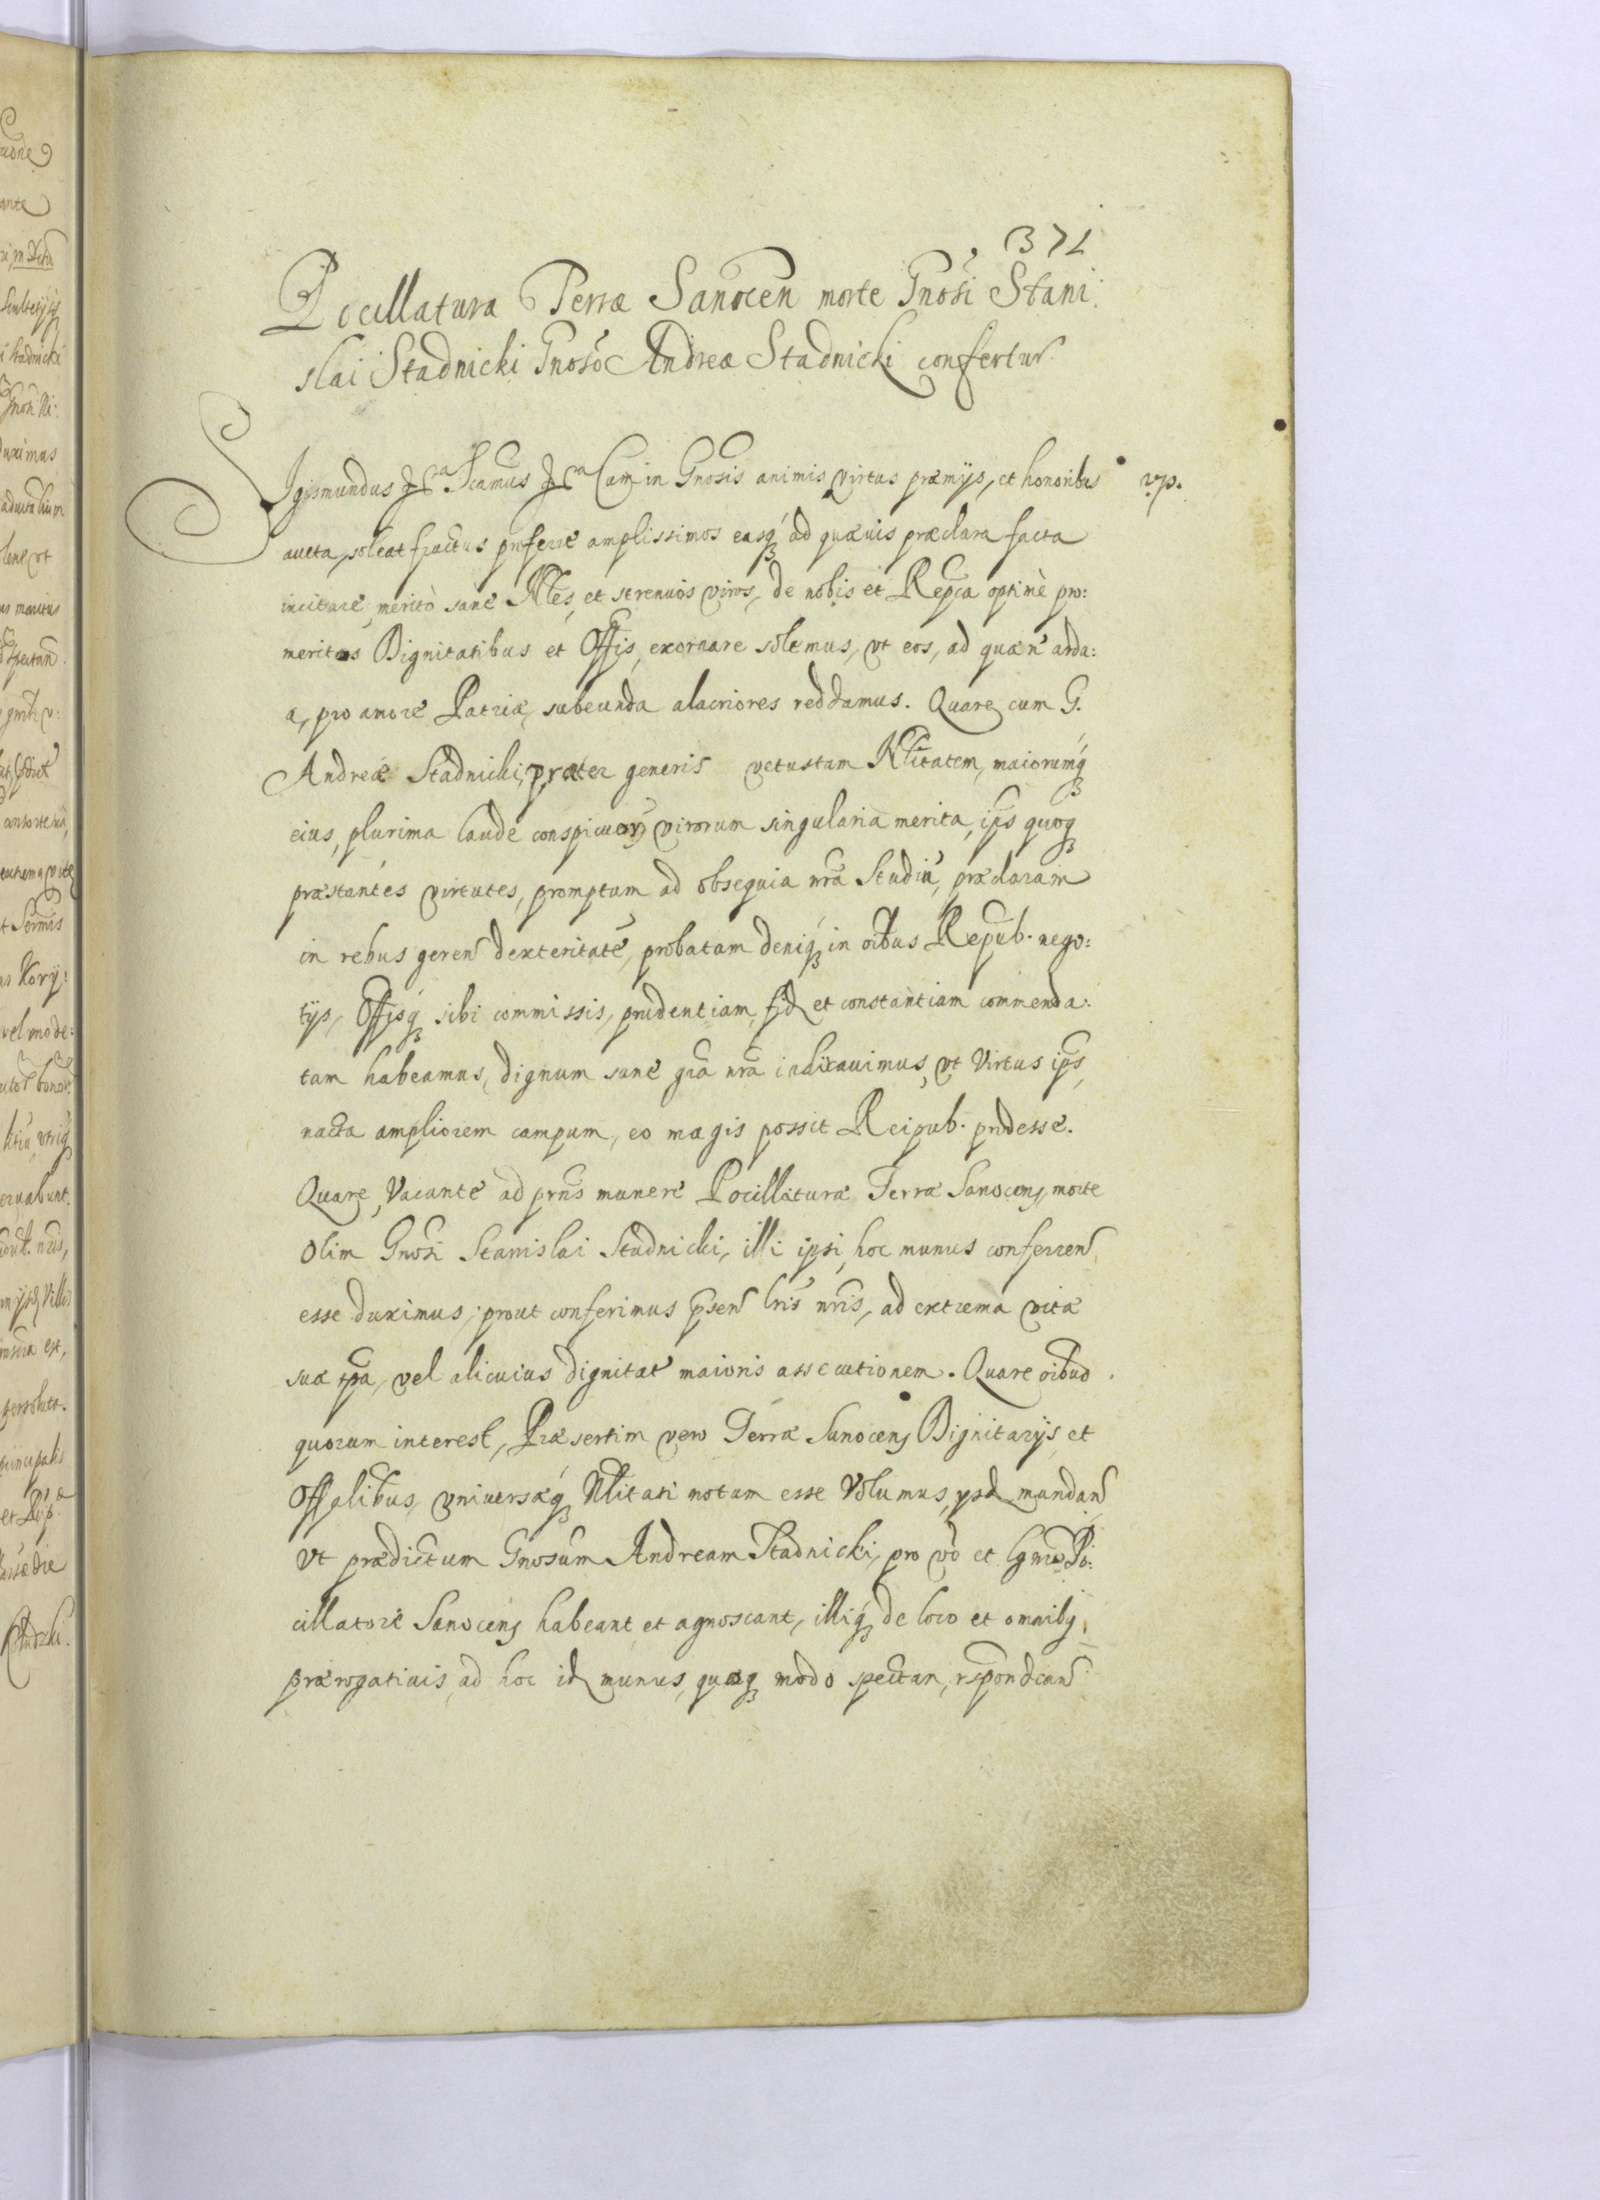 371
Pocillatura Terræ Sanocen morte Gnosi Stani
slai Stadnicki Gnoso Andreæ Stadnicki confertur.
Sigismundus &c Scamus &c Cum in Gnosis animis virtus præmijs, et honoribus
aucta, soleat fructus proferre amplissimos easq ad quæuis præclara facta
incitare, meritò sane Nles, et strenuos viros, de nobis et Repca optimè pro:
meritos Dignitatibus et Offijs, exornare solemus, vt eos, ad quæn ardu:
a, pro amore Patriæ, subeunda alacriores reddamus. Quare cum G.
Andreæ Stadnicki, præter generis vetustam Nlitatem, maiorumq
eius, plurima laude conspicuor virorum singularia merita, ips quoq
præstantes virtutes, promptum ad obsequia nra Studiu, præclaram
in rebus geren dexteritate, probatam deniq in oibus Repub. nego:
tijs, Offijsq sibi commissis, prudentiam, fid et constantiam commenda:
tam habeamus, dignum sane gra nra iudicauimus, vt Virtus ips,
nacta ampliorem campum, eo magis possit Reipub. prodesse.
Quare, Vacante ad prns munere Pocillaturæ Terræ Sanocens, morte
olim Gnosi Stanislai Stadnicki, illi ipsi, hoc munus conferren
esse duximus, prout conferimus psen lris nris, ad extrema vitæ
suæ tpa, vel alicuius dignitat maioris assecutionem. Quare oibus
quorum interest, Præsertim vero Terræ Sanocens Dignitarijs, et
Offalibus, vniuersæq Nlitati notum esse Volumus, mandan
vt prædictum Gnosum Andream Stadnicki, pro vo et lgmo Po:
cillatore Sanocens habeant et agnoscant, illiq de loco et omnibus
prærogatiuis, ad hoc id munus, quoq modo spectan, respondean